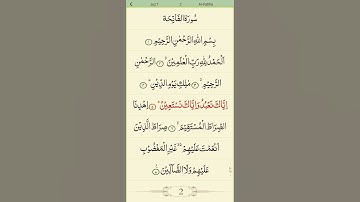 Juz 1 2 Al-Fatiha
سُورَةُ الْفَاتِحَة
بِسْمِ اللّٰهِ الرَّحْمٰنِ الرَّحِيْمِ ۝١
اَلْحَمْدُ لِلّٰهِ رَبِّ الْعٰلَمِيْنَ ۝٢ الرَّحْمٰنِ
الرَّحِيْمِ ۝٣ مٰلِكِ يَوْمِ الدِّيْنِ ۝٤
اِيَّاكَ نَعْبُدُ وَاِيَّاكَ نَسْتَعِيْنُ ۝٥ اِهْدِنَا
الصِّرَاطَ الْمُسْتَقِيْمَ ۝٦ صِرَاطَ الَّذِيْنَ
اَنْعَمْتَ عَلَيْهِمْ غَيْرِ الْمَغْضُوْبِ
عَلَيْهِمْ وَلَا الضَّآلِّيْنَ ۝٧
2